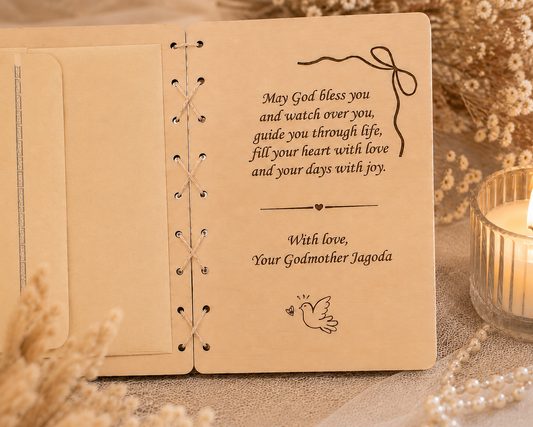 May God bless you
and watch over you,
guide you through life,
fill your heart with love
and your days with joy.
With love,
Your Godmother Jagoda